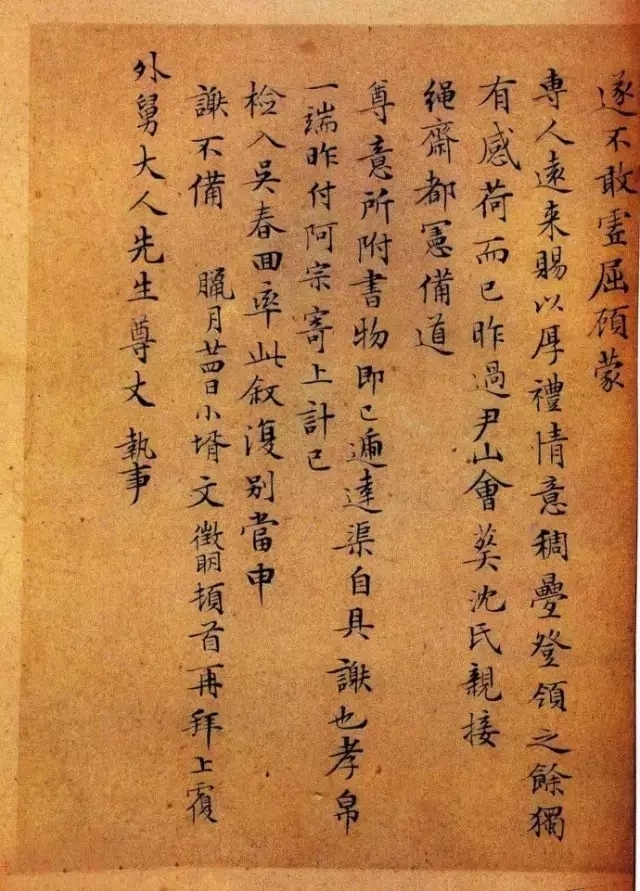 遂不敢虚屈顾蒙
専人遠来賜以厚禮情意稠疊登領之餘獨
有感荷而已昨過尹山會葬沈氏親接
绳齋都憲備道
尊意所附書物即已遞達渠自具謝也孝帛
一端昨付阿宗寄上計已
檢入吳春回率此敘復别當申
謝不備　臘月廿四日小壻文徵明頓首再拜上覆
外舅大人先生尊丈執事